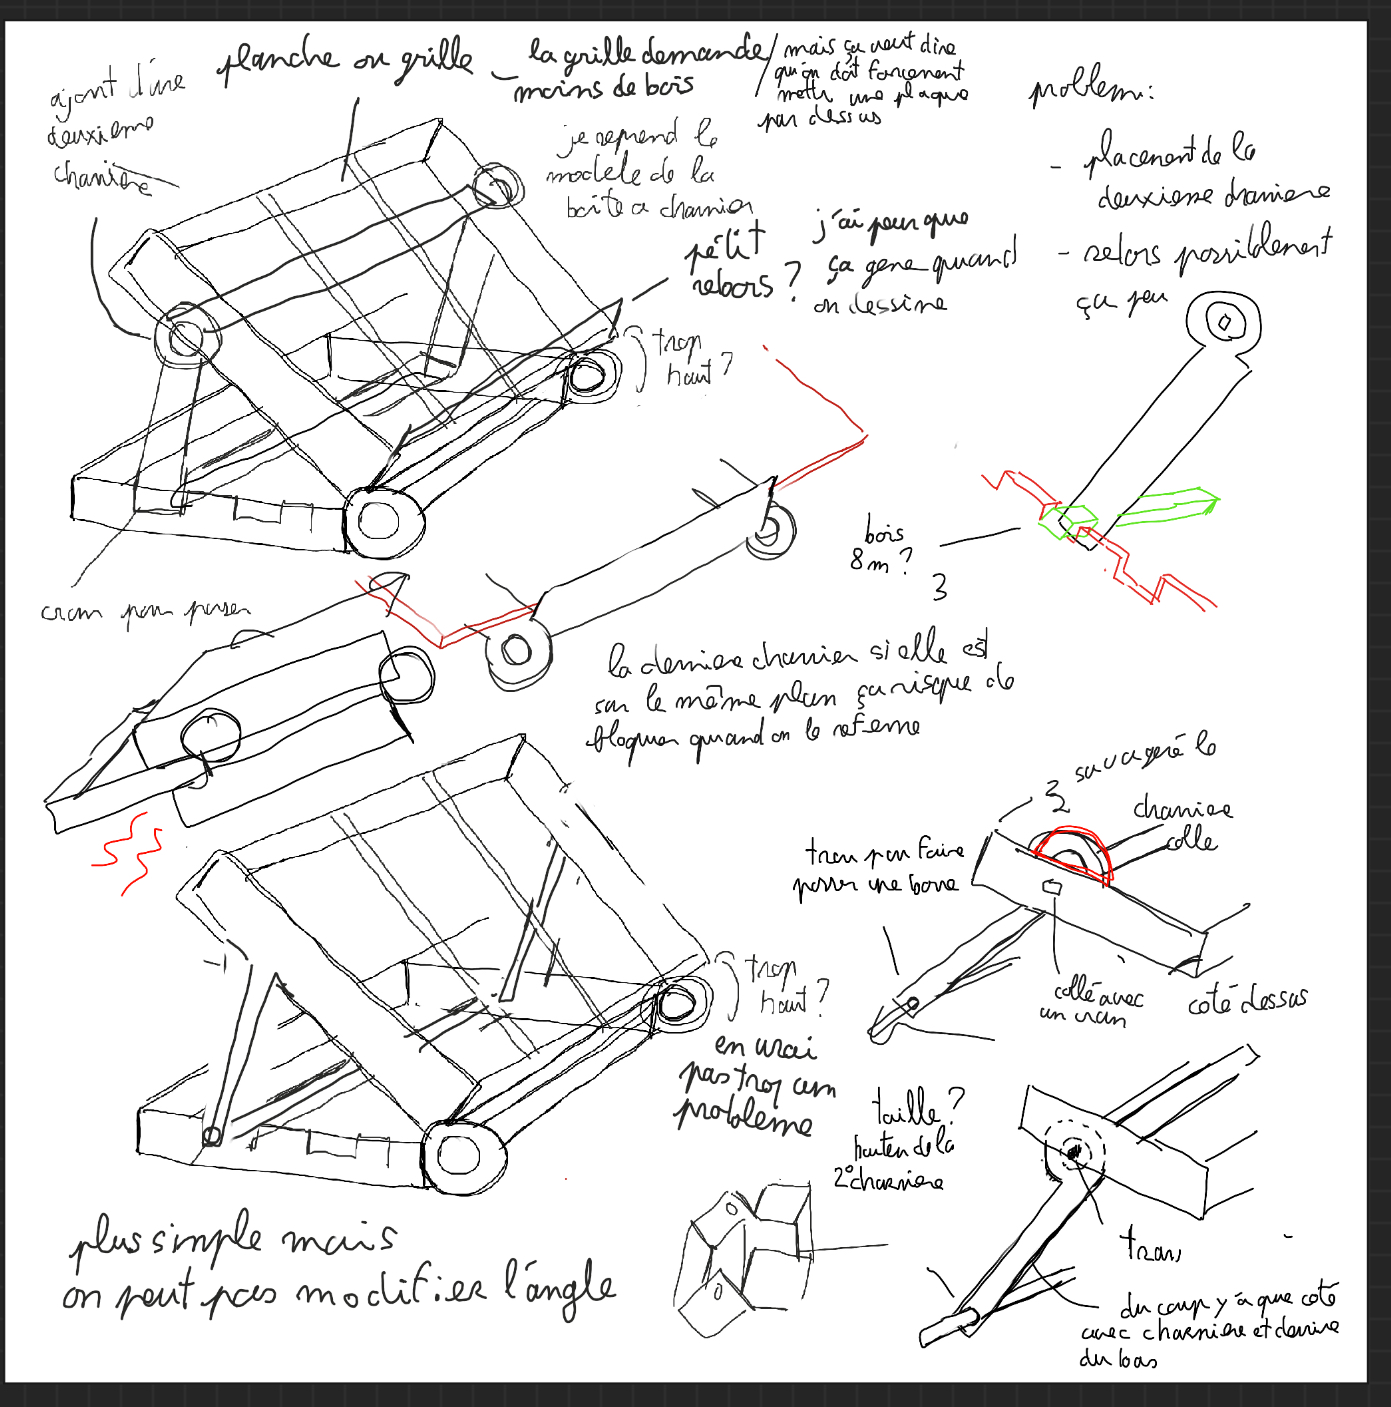 planche ou grille
ajout d'une
deuxieme
charniere
la grille demande
moins de bois
mais ça veut dire
qu'on doit forcement
mettre une plaque
par dessus
je reprend le
modele de la
boite a charnier
pétit
rebors ?
j'ai peur que
ça gene quand
on dessine
probleme :
- placement de la
deuxieme charniere
- selons possiblement
ça peu
trop
haut ?
bois
8 m ?
3
cran pour poser
la derniere charnier si elle est
sur le même plan ça risque de
bloquer quand on le referme
le
3
charniere
colle
trou pour faire
passer une barre
collé avec
un cran
coté dessus
trop
haut ?
en vrai
pas trop un
probleme
taille ?
hauteur de la
2° charniere
trous
du coup y'a que coté
avec charniere et
du bas
plus simple mais
on peut pas modifier l'angle